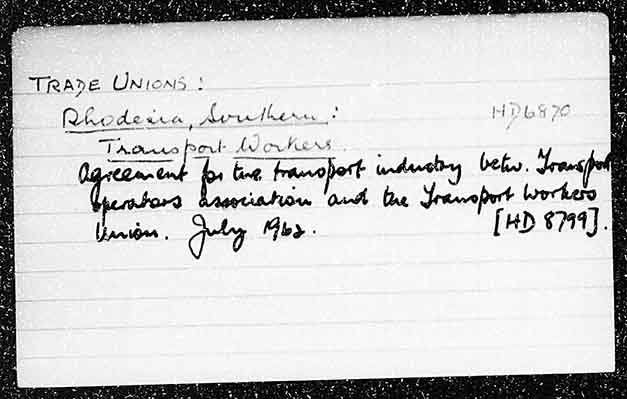 TRADE UNIONS:
Rhodesia, Southern: HD6870
Transport Workers.
Agreement for the transport industry betw. Transport
operators association and the Transport Workers
Union. July 1962. [HD 8799].